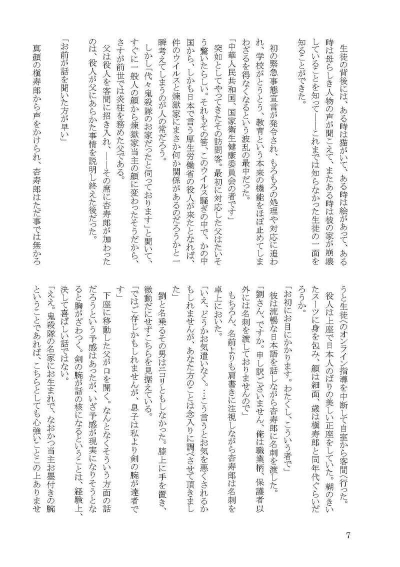 生徒の背後には、ある時は猫がいて、ある時は絵があって、ある
時は母らしき人物の声が聞こえて、またある時は彼の家が崩壊
していることを知って――これまでは知らなかった生徒の一面を
知ることができた。
初の緊急事態宣言が発令され、もろもろの処理や対応に追わ
れ、学校がとうとう、教育という本来の機能をほぼ止めてしま
わざるを得なくなるという波乱の最中だった。
「中華人民共和国、国家衛生健康委員会の者です」
突如としてやってきたその訪問客。最初に対応した父はたいそ
う驚いたらしい。それもその筈、このウイルス騒ぎの中で、かの中
国から、しかも日本で言う厚生労働省の役人が来たとなれば、
件のウイルスと煉󠄁獄家にまさか何か関係があるのだろうかと一
瞬考えてしまうのが人の常だろう。
しかし「代々鬼殺隊のお家だったと伺っております」と聞いて、
すぐに一般人の顔から煉獄家当主の顔に変わったそうだから、
さすが前世では炎柱を務めた父である。
父は役人を客間に招き入れ、――その席に杏寿郎が加わった
のは、役人が父にあらかた事情を説明し終えた後だった。
「お前が話を聞いた方が早い」
真顔の槇寿郎から声をかけられ、杏寿郎はただ事では無かろ
うと生徒へのオンライン指導を中断して自室から客間へ行った。
役人は上座で日本人のばりの美しい正座をしていた。糊のきい
たスーツに身を包み、顔は細面、歳は槇寿郎と同年代ぐらいだ
ろうか。
「お初にお目にかかります。わたくし、こういう者で」
彼は流暢な日本語を話しながら杏寿郎に名刺を渡した。
「劉さん、ですか。申し訳ございません、俺は職業柄、保護者以
外には名刺を渡しておりませんので」
もちろん、名前よりも肩書きに注視しながら杏寿郎は名刺を
卓上においた。
「いえ、どうかお気遣いなく。…こう言うとお気を悪くされるか
もしれませんが、あなた方のことは念入りに調べさせて頂きまし
た」
劉と名乗るその男はニコリともしなかった。膝上に手を置き、
微動だにせずこちらを見据えている。
「ではご存じかもしれませんが、息子は私より剣の腕が達者で
す」
下座に移動した父が口を開く。なんとなくそういう方面の話
だろうという予感はあったが、いざ予感が現実になりそうとな
ると胸がざわつく。剣の腕が話の核になるということは、経験上、
決して喜ばしい話ではない。
「ええ。鬼殺隊の名家にお生まれで、なおかつ当主お墨付きの腕
ということであれば、こちらとしても心強いことこの上ありませ
7